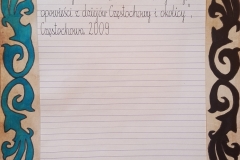 opowieści z dziejów Częstochowy i okolicy",
Częstochowa 2009